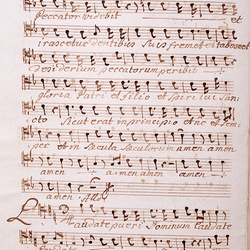 peccator videbit et
irascetur dentibus suis fremet et tabescet
desiderium peccatorum peribit
gloria Patri et filio et spiritui san
cto Sicut erat in principio et nunc et sem
per et in Saecula Saeculorum amen amen
amen amen amen
amen
Laudate pueri Dominum Laudate